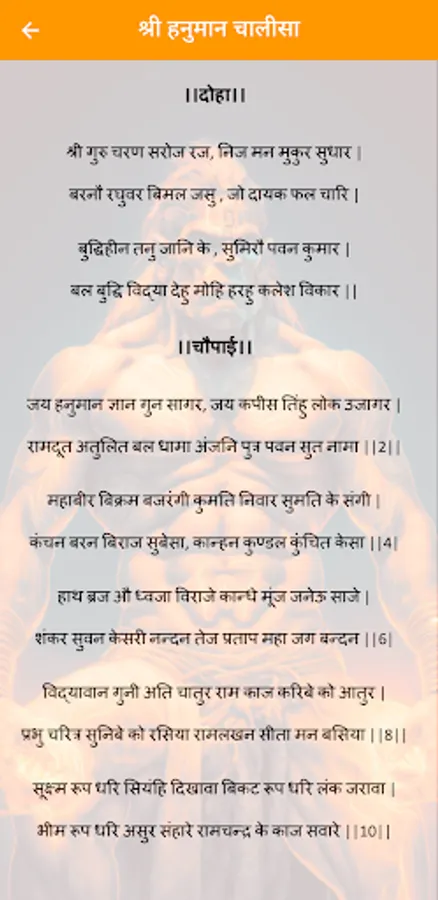 श्री हनुमान चालीसा
।।दोहा।।
श्री गुरु चरण सरोज रज, निज मन मुकुर सुधार |
बरनौ रघुवर बिमल जसु , जो दायक फल चारि |
बुद्धिहीन तनु जानि के , सुमिरौ पवन कुमार |
बल बुद्धि विद्या देहु मोहि हरहु कलेश विकार ||
।।चौपाई।।
जय हनुमान ज्ञान गुन सागर, जय कपीस तिंहु लोक उजागर |
रामदूत अतुलित बल धामा अंजनि पुत्र पवन सुत नामा ||2||
महाबीर बिक्रम बजरंगी कुमति निवार सुमति के संगी |
कंचन बरन बिराज सुबेसा, कान्हन कुण्डल कुंचित केसा ||4|
हाथ ब्रज औ ध्वजा विराजे कान्धे मूंज जनेऊ साजे |
शंकर सुवन केसरी नन्दन तेज प्रताप महा जग बन्दन ||6|
विद्यावान गुनी अति चातुर राम काज करिबे को आतुर |
प्रभु चरित्र सुनिबे को रसिया रामलखन सीता मन बसिया ||8||
सूक्ष्म रूप धरि सियंहि दिखावा बिकट रूप धरि लंक जरावा |
भीम रूप धरि असुर संहारे रामचन्द्र के काज सवारे ||10||